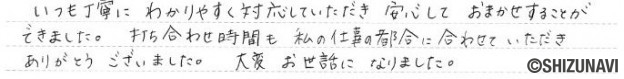 いつも丁寧に わかりやすく対応していただき 安心して おまかせすることが
できました。 打ち合わせ時間も 私の仕事の都合に合わせていただき
ありがとうございました。 大変 お世話に なりました。
©SHIZUNAVI